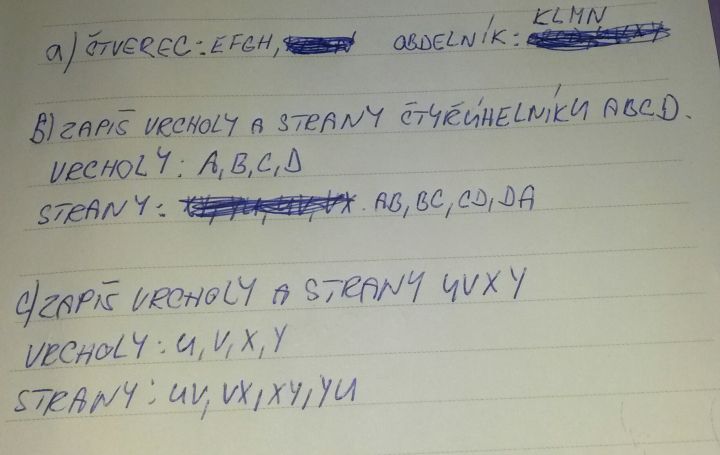 a) ČTVEREC: EFGH, OBDELNÍK: KLMN
B) ZAPIŠ VRCHOLY A STRANY ČTYŘÚHELNÍKU ABCD.
VRCHOLY: A, B, C, D
STRANY: AB, BC, CD, DA
C) ZAPIŠ VRCHOLY A STRANY UVXY
VRCHOLY: U, V, X, Y
STRANY: UV, VX, XY, YU